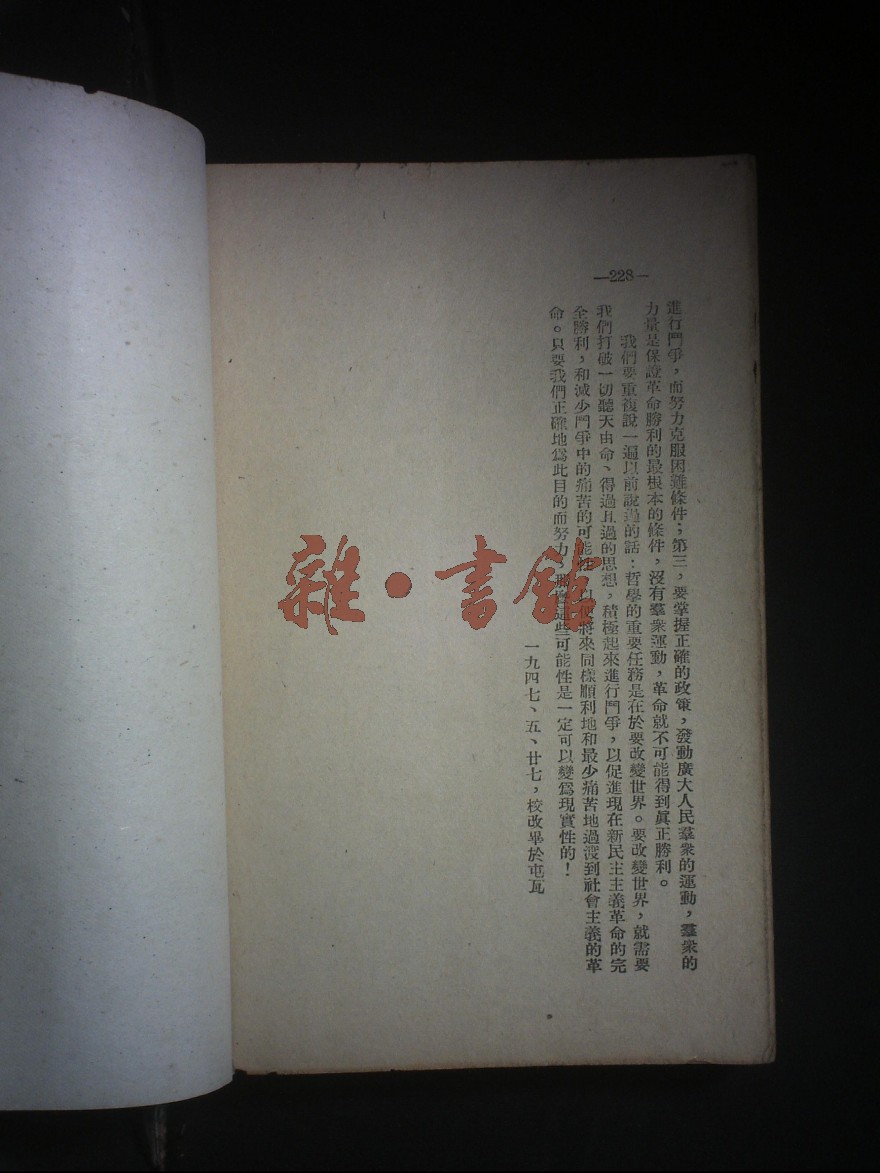 —228—
進行鬥爭，而努力克服困難條件；第三，要掌握正確的政策，發動廣大人民羣衆的運動，羣衆的
力量是保證革命勝利的最根本的條件，沒有羣衆運動，革命就不可能得到眞正勝利。
我們要重複說一遍以前說過的話：哲學的重要任務是在於要改變世界。要改變世界，就需要
我們打破一切聽天由命、得過且過的思想，積極起來進行鬥爭，以促進現在新民主主義革命的完
全勝利，和減少鬥爭中的痛苦的可能性，以便將來同樣順利地和最少痛苦地過渡到社會主義的革
命。只要我們正確地爲此目的而努力，這些可能性是一定可以變爲現實性的！
一九四七、五、廿七，校改畢於屯瓦
雜·書館